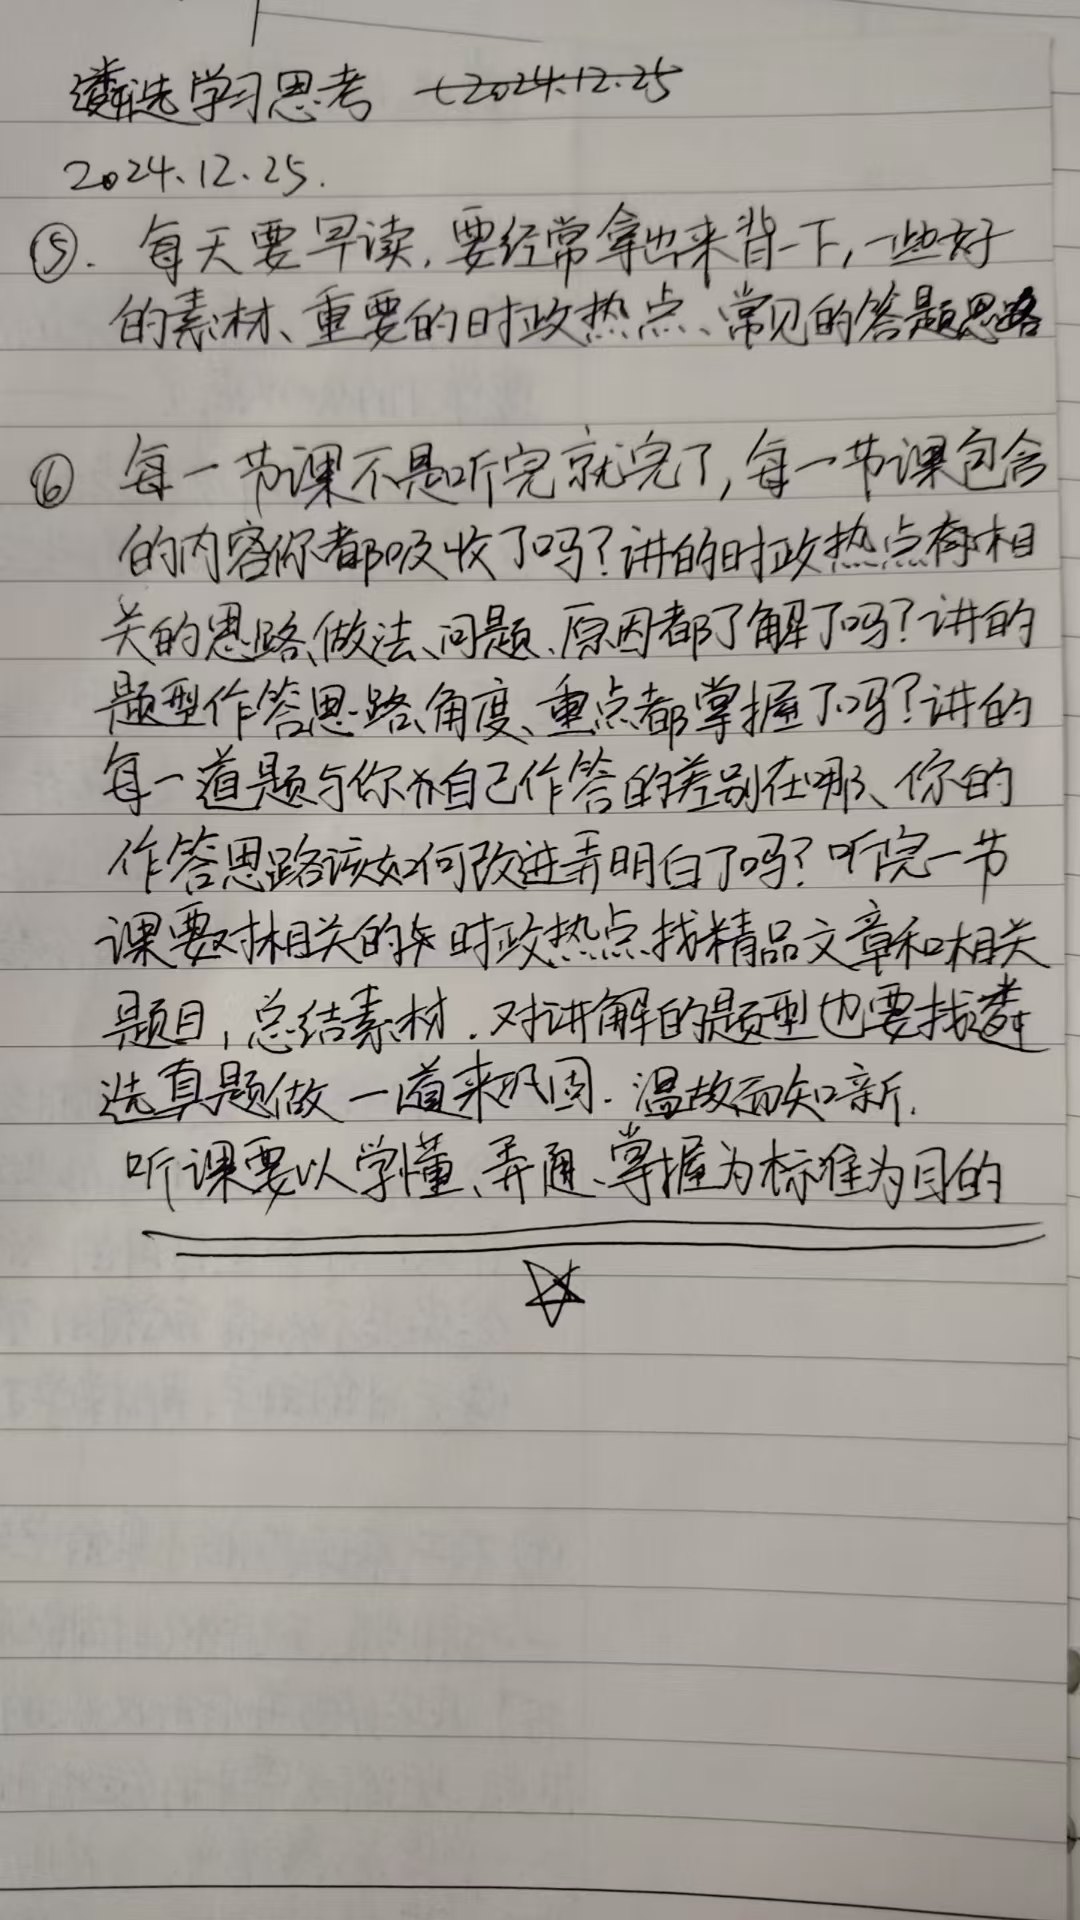 遴选学习思考 -2024.12.25
2024.12.25.
⑤. 每天要早读，要经常拿出来背一下，一些好
的素材、重要的时政热点、常见的答题思路
⑥ 每一节课不是听完就完了，每一节课包含
的内容你都吸收了吗？讲的时政热点有相
关的思路、做法、问题、原因都了解了吗？讲的
题型作答思路、角度、重点都掌握了吗？讲的
每一道题与你自己作答的差别在哪、你的
作答思路该如何改进弄明白了吗？听完一节
课要对相关的时政热点找精品文章和相关
题目，总结素材．对讲解的题型也要找遴
选真题做一道来巩固．温故而知新．
听课要以学懂、弄通、掌握为标准为目的